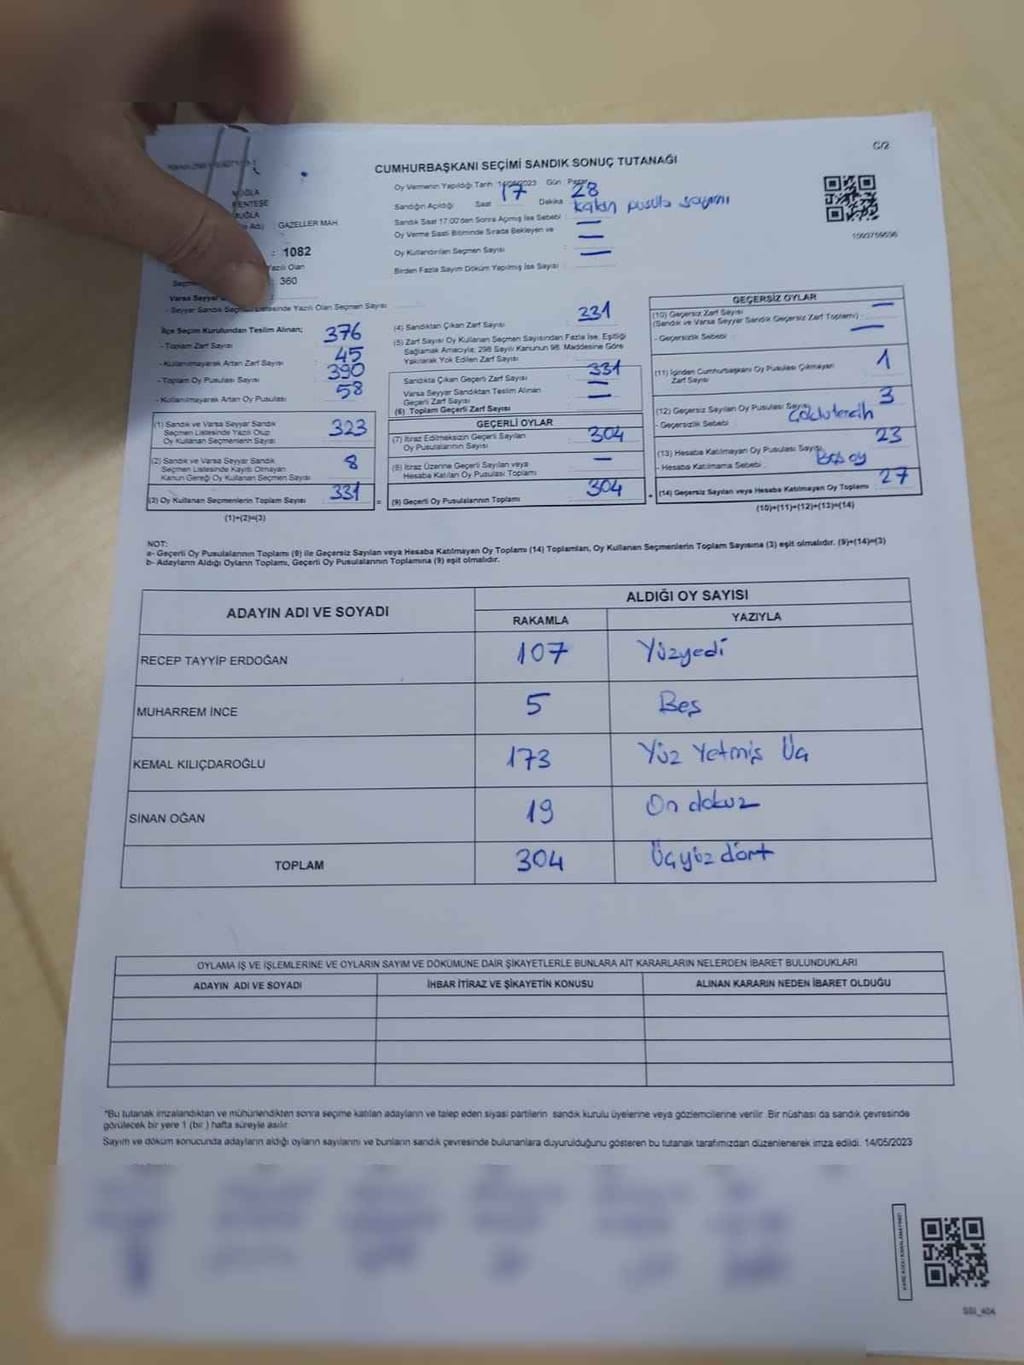 C/2
CUMHURBAŞKANI SEÇİMİ SANDIK SONUÇ TUTANAĞI
Oy Vermenin Yapıldığı Tarih 14/05/2023 Gün : Pazar
Sandığın Açıldığı Saat 17 Dakika 28
Sandık Saat 17:00'den Sonra Açımış İse Sebebi : — kalan pusula sayımı
Oy Verme Saati Bitiminde Sırada Bekleyen ve
Oy Kullandırılan Seçmen Sayısı : —
Birden Fazla Sayım Döküm Yapılmış İse Sayısı : —
1593759696
MUĞLA
MENTEŞE
MUĞLA
GAZELLER MAH.
: 1082
Yazılı Olan
: 360
Varsa Seyyar
- Seyyar Sandık Seçmen Listesinde Yazılı Olan Seçmen Sayısı
İlçe Seçim Kurulundan Teslim Alınan;
- Toplam Zarf Sayısı : 376
- Kullanılmayarak Artan Zarf Sayısı : 45
- Toplam Oy Pusulası Sayısı : 390
- Kullanılmayarak Artan Oy Pusulası : 58
(1) Sandık ve Varsa Seyyar Sandık
Seçmen Listesinde Yazılı Olup
Oy Kullanan Seçmenlerin Sayısı 323
(2) Sandık ve Varsa Seyyar Sandık
Seçmen Listesinde Kayıtlı Olmayan
Kanun Gereği Oy Kullanan Seçmen Sayısı 8
(3) Oy Kullanan Seçmenlerin Toplam Sayısı 331
(1)+(2)=(3)
(4) Sandıktan Çıkan Zarf Sayısı : 331
(5) Zarf Sayısı Oy Kullanan Seçmen Sayısından Fazla İse, Eşitliği
Sağlamak Amacıyla; 298 Sayılı Kanunun 98. Maddesine Göre
Yakılarak Yok Edilen Zarf Sayısı
Sandıkta Çıkan Geçerli Zarf Sayısı : 331
Varsa Seyyar Sandıktan Teslim Alınan
Geçerli Zarf Sayısı —
(6) Toplam Geçerli Zarf Sayısı —
GEÇERLİ OYLAR
(7) İtiraz Edilmeksizin Geçerli Sayılan
Oy Pusulasının Sayısı : 304
(8) İtiraz Üzerine Geçerli Sayılan veya
Hesaba Katılan Oy Pusulası Toplamı —
(9) Geçerli Oy Pusulalarının Toplamı 304
GEÇERSİZ OYLAR
(10) Geçersiz Zarf Sayısı —
(Sandık ve Varsa Seyyar Sandık Geçersiz Zarf Toplamı) :
- Geçersizlik Sebebi : —
(11) İçinden Cumhurbaşkanı Oy Pusulası Çıkmayan
Zarf Sayısı 1
(12) Geçersiz Sayılan Oy Pusulası Sayısı 3
- Geçersizlik Sebebi : Çoklu tercih
(13) Hesaba Katılmayan Oy Pusulası Sayısı 23
- Hesaba Katılmama Sebebi : Boş oy
(14) Geçersiz Sayılan veya Hesaba Katılmayan Oy Toplamı 27
(10)+(11)+(12)+(13)=(14)
NOT:
a- Geçerli Oy Pusulalarının Toplamı (9) ile Geçersiz Sayılan veya Hesaba Katılmayan Oy Toplamı (14) Toplamları, Oy Kullanan Seçmenlerin Toplam Sayısına (3) eşit olmalıdır. (9)+(14)=(3)
b- Adayların Aldığı Oyların Toplamı, Geçerli Oy Pusulalarının Toplamına (9) eşit olmalıdır.
ADAYIN ADI VE SOYADI
ALDIĞI OY SAYISI
RAKAMLA YAZIYLA
RECEP TAYYİP ERDOĞAN 107 Yüzyedi
MUHARREM İNCE 5 Beş
KEMAL KILIÇDAROĞLU 173 Yüz Yetmiş Üç
SİNAN OĞAN 19 On dokuz
TOPLAM 304 Üçyüz dört
OYLAMA İŞ VE İŞLEMLERİNE VE OYLARIN SAYIM VE DÖKÜMÜNE DAİR ŞİKAYETLERLE BUNLARA AİT KARARLARIN NELERDEN İBARET BULUNDUKLARI
ADAYIN ADI VE SOYADI İHBAR İTİRAZ VE ŞİKAYETİN KONUSU ALINAN KARARIN NEDEN İBARET OLDUĞU
*Bu tutanak imzalandıktan ve mühürlendikten sonra seçime katılan adayların ve talep eden siyasi partilerin sandık kurulu üyelerine veya gözlemcilerine verilir. Bir nüshası da sandık çevresinde
görülecek bir yere 1 (bir ) hafta süreyle asılır.
Sayım ve döküm sonucunda adayların aldığı oyların sayılarını ve bunların sandık çevresinde bulunanlara duyurulduğunu gösteren bu tutanak tarafımızdan düzenlenerek imza edildi. 14/05/2023